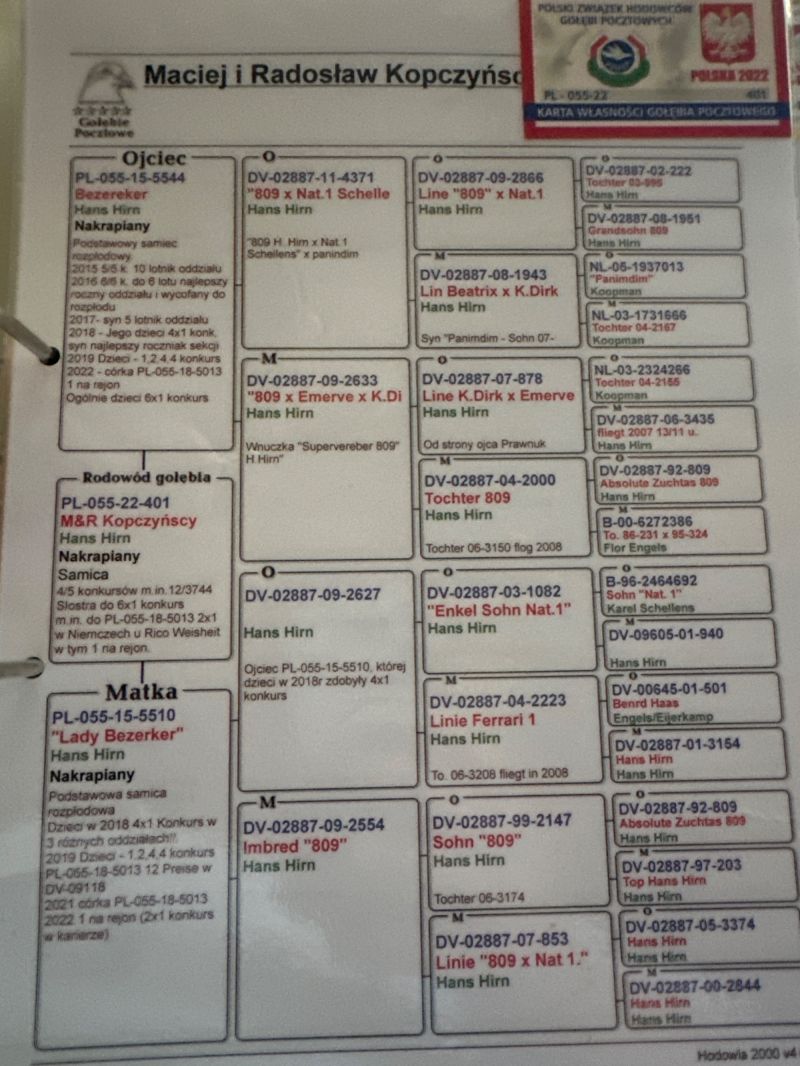 POLSKI ZWIĄZEK HODOWCÓW
GOŁĘBI POCZTOWYCH
POLSKA 2022
PL - 055-22 401
KARTA WŁASNOŚCI GOŁĘBIA POCZTOWEGO
Maciej i Radosław Kopczyńsc
Gołębie
Pocztowe
Ojciec
PL-055-15-5544
Bezereker
Hans Hirn
Nakrapiany
Podstawowy samiec
rozpłodowy
2015 5/5 k. 10 lotnik oddziału
2016 6/6 k. do 6 lotu najlepszy
roczny oddziału i wycofany do
rozpłodu
2017- syn 5 lotnik oddziału
2018 - Jego dzieci 4x1 konk.
syn najlepszy roczniak sekcji
2019 Dzieci - 1,2,4,4 konkurs
2022 - córka PL-055-18-5013
1 na rejon
Ogólnie dzieci 6x1 konkurs
Rodowód gołębia
PL-055-22-401
M&R Kopczyńscy
Hans Hirn
Nakrapiany
Samica
4/5 konkursów m.in.12/3744
Siostra do 6x1 konkurs
m.in. do PL-055-18-5013 2x1
w Niemczech u Rico Weisheit
w tym 1 na rejon.
Matka
PL-055-15-5510
"Lady Bezerker"
Hans Hirn
Nakrapiany
Podstawowa samica
rozpłodowa
Dzieci w 2018 4x1 Konkurs w
3 różnych oddziałach!!
2019 Dzieci - 1,2,4,4 konkurs
PL-055-18-5013 12 Preise w
DV-09118
2021 córka PL-055-18-5013
2022 1 na rejon (2x1 konkurs
w karierze)
O
DV-02887-11-4371
"809 x Nat.1 Schelle
Hans Hirn
"809 H. Hirn x Nat.1
Schellens" x panindim
M
DV-02887-09-2633
"809 x Emerve x K.Di
Hans Hirn
Wnuczka "Supervereber 809"
H Hirn"
O
DV-02887-09-2627
Hans Hirn
Ojciec PL-055-15-5510, której
dzieci w 2018r zdobyły 4x1
konkurs
M
DV-02887-09-2554
Imbred "809"
Hans Hirn
O
DV-02887-09-2866
Line "809" x Nat.1
Hans Hirn
M
DV-02887-08-1943
Lin Beatrix x K.Dirk
Hans Hirn
Syn "Panimdim - Sohn 07-
O
DV-02887-07-878
Line K.Dirk x Emerve
Hans Hirn
Od strony ojca Prawnuk
M
DV-02887-04-2000
Tochter 809
Hans Hirn
Tochter 06-3150 flog 2008
O
DV-02887-03-1082
"Enkel Sohn Nat.1"
Hans Hirn
M
DV-02887-04-2223
Linie Ferrari 1
Hans Hirn
To. 06-3208 fliegt in 2008
O
DV-02887-99-2147
Sohn "809"
Hans Hirn
Tochter 06-3174
M
DV-02887-07-853
Linie "809 x Nat 1."
Hans Hirn
O
DV-02887-02-222
Tochter 03-595
Hans Hirn
M
DV-02887-08-1951
Grandsohn 809
Hans Hirn
O
NL-05-1937013
"Panimdim"
Koopman
M
NL-03-1731666
Tochter 04-2167
Koopman
O
NL-03-2324266
Tochter 04-2155
Koopman
M
DV-02887-06-3435
fliegt 2007 13/11 u.
Hans Hirn
O
DV-02887-92-809
Absolute Zuchtas 809
Hans Hirn
M
B-00-6272386
To. 86-231 x 95-324
Flor Engels
O
B-96-2464692
Sohn "Nat. 1"
Karel Schellens
M
DV-09605-01-940
Hans Hirn
O
DV-00645-01-501
Benrd Haas
Engels/Eijerkamp
M
DV-02887-01-3154
Hans Hirn
Hans Hirn
O
DV-02887-92-809
Absolute Zuchtas 809
Hans Hirn
M
DV-02887-97-203
Top Hans Hirn
Hans Hirn
O
DV-02887-05-3374
Hans Hirn
Hans Hirn
M
DV-02887-00-2844
Hans Hirn
Hans Hirn
Hodowla 2000 v4